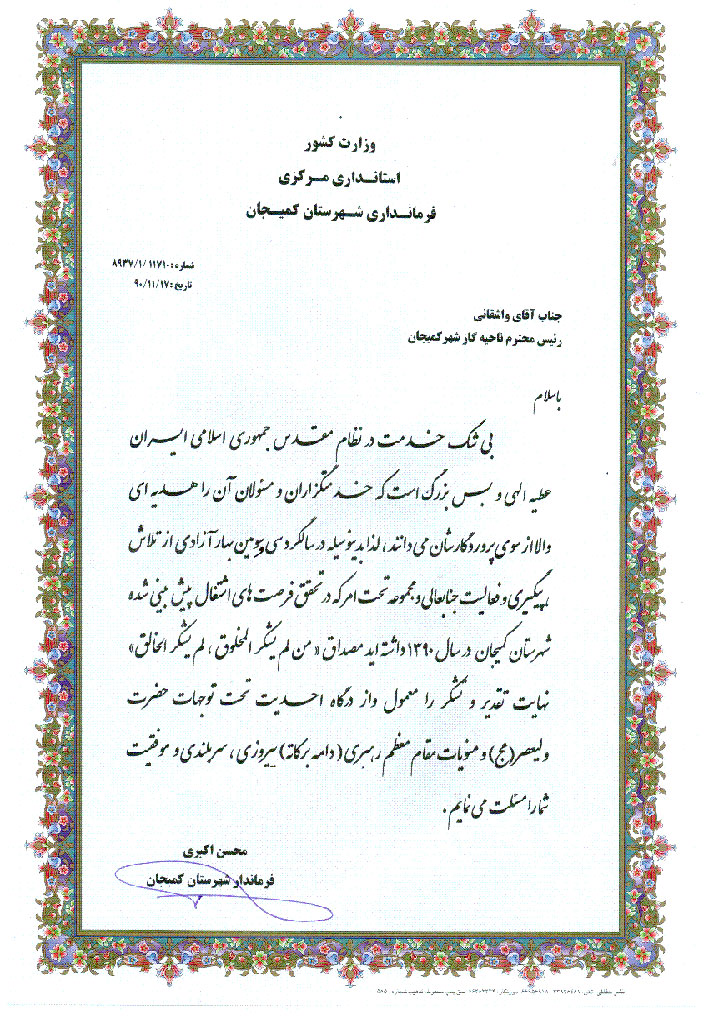 وزارت کشور
استانداری مرکزی
فرمانداری شهرستان کمیجان
شماره: ۸۹۳۷/۱/۱۱۷۱۰
تاریخ: ۹۰/۱۱/۱۷
جناب آقای واشقانی
رئیس محترم ناحیه کار شهر کمیجان
باسلام
بی شک خدمت در نظام مقدس جمهوری اسلامی ایران
عطیه الهی و بس بزرگ است که خدمتگزاران و مسئولان آن را هدیه ای
والا از سوی پروردگارشان می دانند، لذا بدینوسیله در سالگرد سی و سومین بهار آزادی از تلاش
، پیگیری و فعالیت جنابعالی و مجموعه تحت امر که در تحقق فرصت های اشتغال پیش بینی شده
شهرستان کمیجان در سال ۱۳۹۰ داشته اید مصداق « من لم یشکر المخلوق ، لم یشکر الخالق»
نهایت تقدیر و تشکر را معمول و از درگاه احدیت تحت توجهات حضرت
ولیعصر(عج) و منویات مقام معظم رهبری ( دامه برکاته) پیروزی ، سربلندی و موفقیت
شما را مسئلت می نمایم .
محسن اکبری
فرماندار شهرستان کمیجان